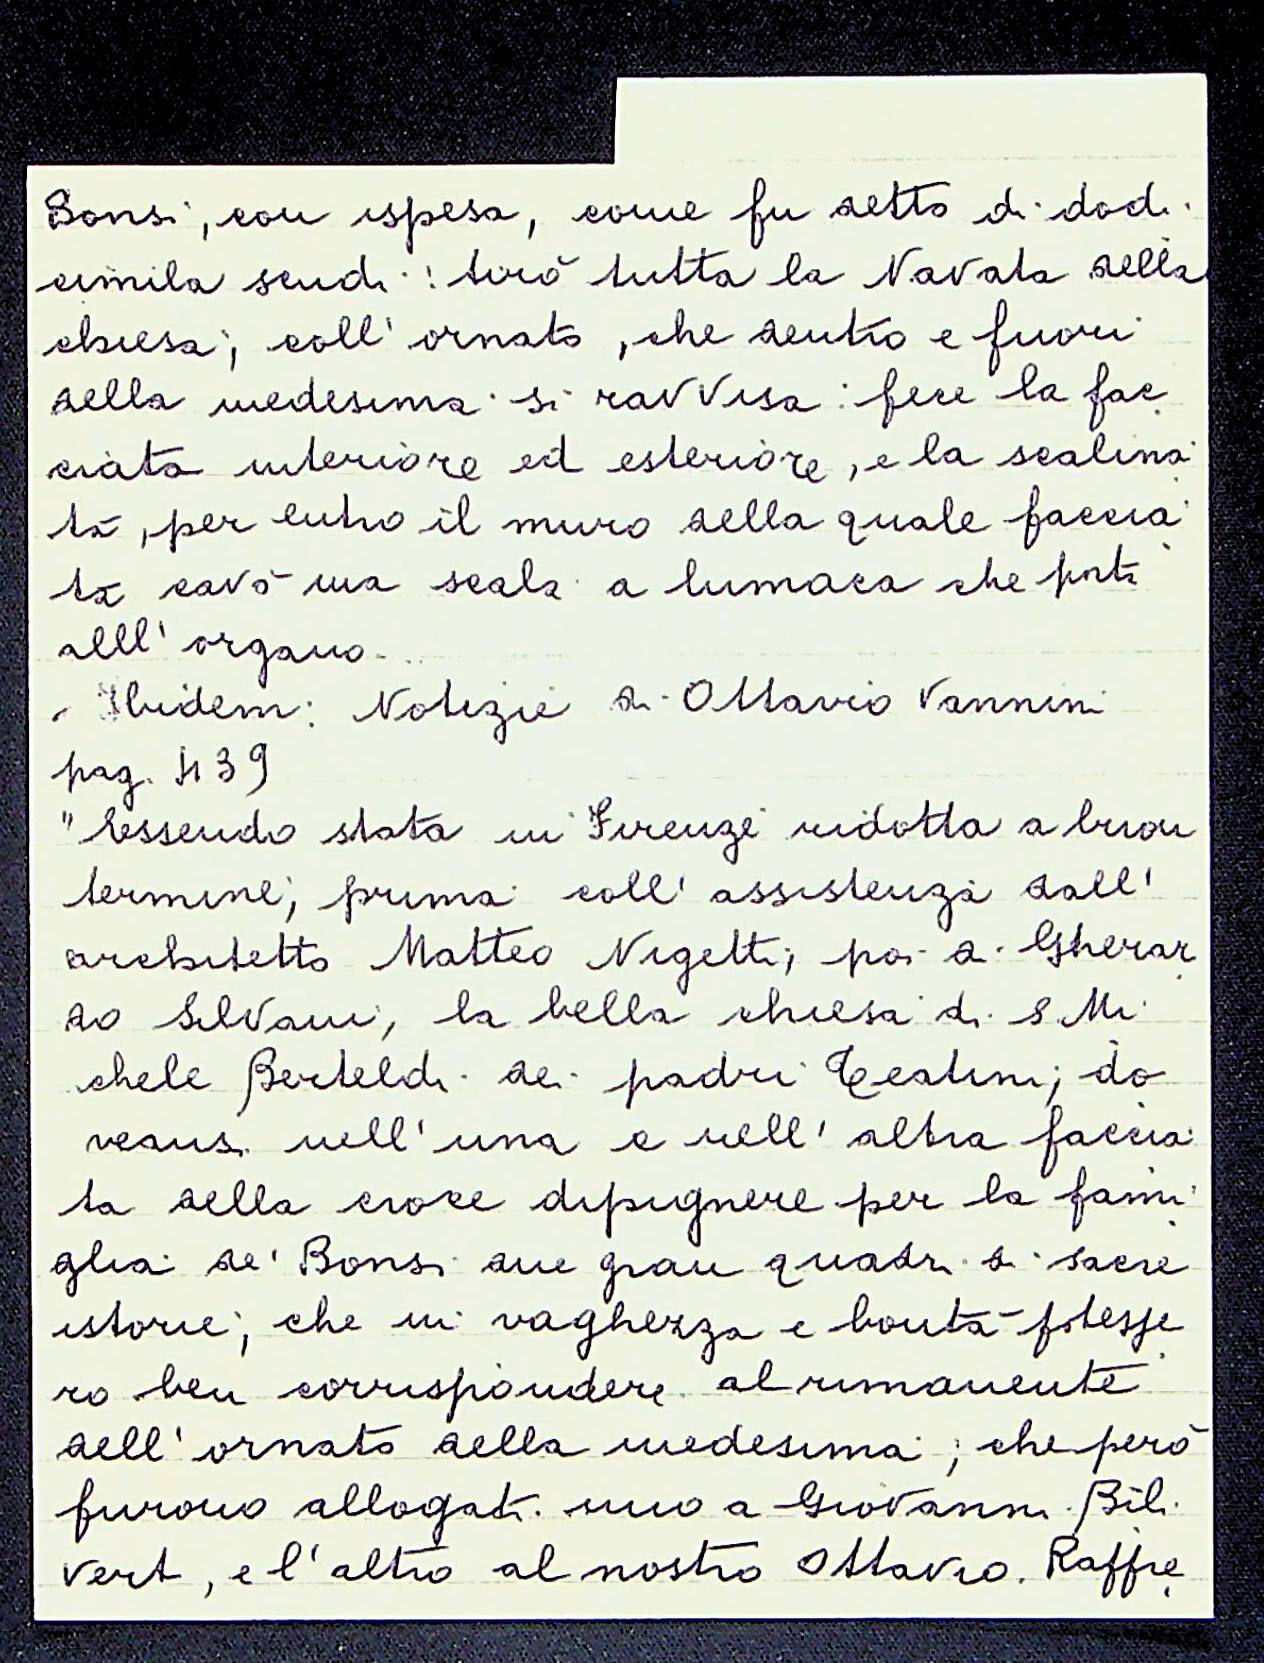 Bonsi, con ispesa, come fu detto di dodi
cimila scudi: tirò tutta la Navata della
chiesa, coll' ornato, che dentro e fuori
della medesima si ravvisa: fece la fac
ciata interiore ed esteriore, e la scalina
ta, per entro il muro della quale faccia
ta cavò una scala a lumaca che porta
alll' organo.
Ibidem: Notizie di Ottavio Vannini
pag. 439
"Essendo stata in Firenze ridotta a buon
termine, prima coll' assistenza dall'
architetto Matteo Nigetti, poi di Gherar
do Silvani, la bella chiesa di S. Mi
chele Berteldi dei padri Teatini; do
veansi nell' una e nell' altra faccia
ta della croce dipignere per la fami
glia de' Bonsi due gran quadri di sacre
istorie, che in vaghezza e bontà potesse
ro ben corrispondere al rimanente
dell' ornato della medesima; che però
furono allogati uno a Giovanni Bili
vert, e l' altro al nostro Ottavio. Raffre